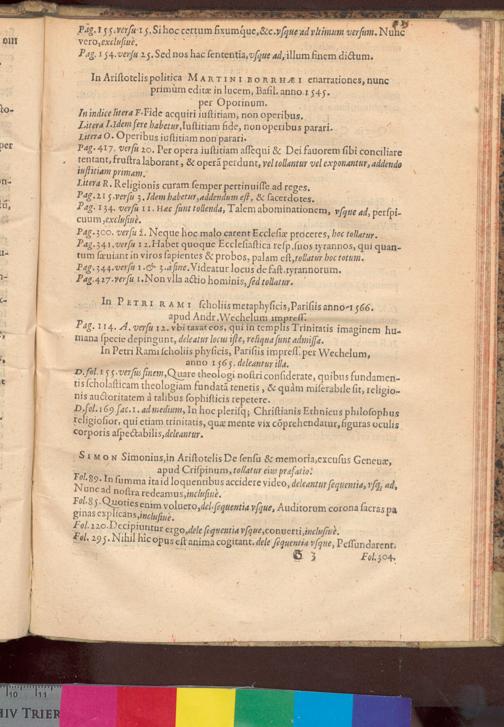 Pag. 155. versu 15. Si hoc certum fixumq́ue, &c. vsque ad vltimum versum. Nunc
vero, exclusiuè.
Pag. 154. versu 25. Sed nos hac sententia, vsque ad, illum finem dictum.
In Aristotelis politica MARTINI BORRHÆI enarrationes, nunc
primùm editæ in lucem, Basil. anno 1545.
per Oporinum.
In indice litera F. Fide acquiri iustitiam, non operibus.
Litera I. Idem fere habetur, Iustitiam fide, non operibus parari.
Litera O. Operibus iustitiam non parari.
Pag. 417. versu 20. Per opera iustitiam assequi & Dei fauorem sibi conciliare
tentant, frustra laborant, & operã perdunt, vel tollantur vel exponantur, addendo
iustitiam primam.
Litera R. Religionis curam semper pertinuisse ad reges.
Pag. 215. versu 3. Idem habetur, addendum est, & sacerdotes.
Pag. 134. versu 11. Hæc sunt tollenda, Talem abominationem, vsque ad, perspi-
cuum, exclusiuè.
Pag. 300. versu 2. Neque hoc malo carent Ecclesiæ proceres, hoc tollatur.
Pag. 341. versu 12. Habet quoque Ecclesiastica resp. suos tyrannos, qui quan-
tum sæuiant in viros sapientes & probos, palam est, tollatur hoc totum.
Pag. 344. versu 1. & 3. à fine. Videatur locus de fast. tyrannorum.
Pag. 427. versu 1. Non vlla actio hominis, sed tollatur.
In PETRI RAMI scholiis metaphysicis, Parisiis anno 1566.
apud Andr. Wechelum impress.
Pag. 114. A. versu 12. vbi taxat eos, qui in templis Trinitatis imaginem hu-
mana specie depingunt, deleatur locus iste, reliqua sunt admissa.
In Petri Rami scholiis physicis, Parisiis impress. per Wechelum,
anno 1565. deleantur illa.
D. fol. 155. versus finem, Quare theologi nostri considerate, quibus fundamen-
tis scholasticam theologiam fundatã teneris, & quàm miserabile sit, religio-
nis auctoritatem à talibus sophisticis repetere.
D. fol. 169 fac. 1. ad medium, In hoc plerisq; Christianis Ethnicus philosophus
religiosior, qui etiam trinitatis, quæ mente vix cõprehendatur, figuras oculis
corporis aspectabilis, deleantur.
SIMON Simonius, in Aristotelis De sensu & memoria, excusus Geneuæ,
apud Crispinum, tollatur eius præfatio.
Fol. 89. In summa ita id loquentibus accidere video, deleantur sequentia, vsq; ad,
Nunc ad nostra redeamus, inclusiuè.
Fol. 85. Quoties enim voluero, del. sequentia vsque, Auditorum corona sacras pa
ginas explicans, inclusiuè.
Fol. 220. Decipiuntur ergo, dele sequentia vsque, conuerti, inclusiuè.
Fol. 295. Nihil hic opus est anima cogitant. dele sequentia vsque, Pessundarent.
G 3 Fol. 304.
10 11
HIV TRIER